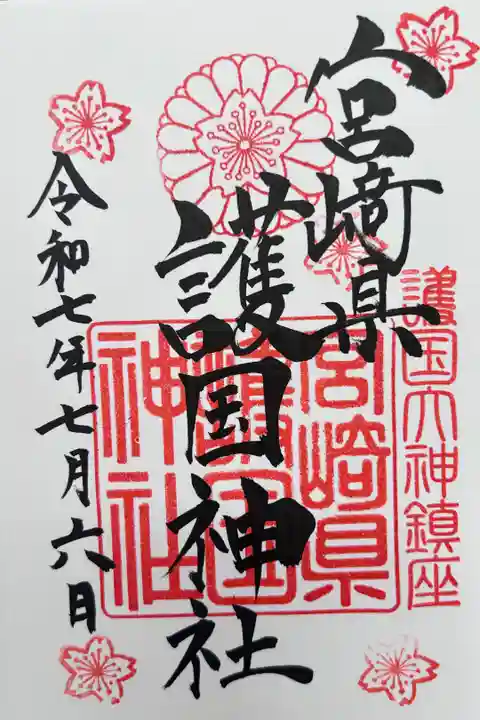 宮﨑県
護国神社
護国大神鎮座
宮崎県
護國
神社
令和七年七月六日